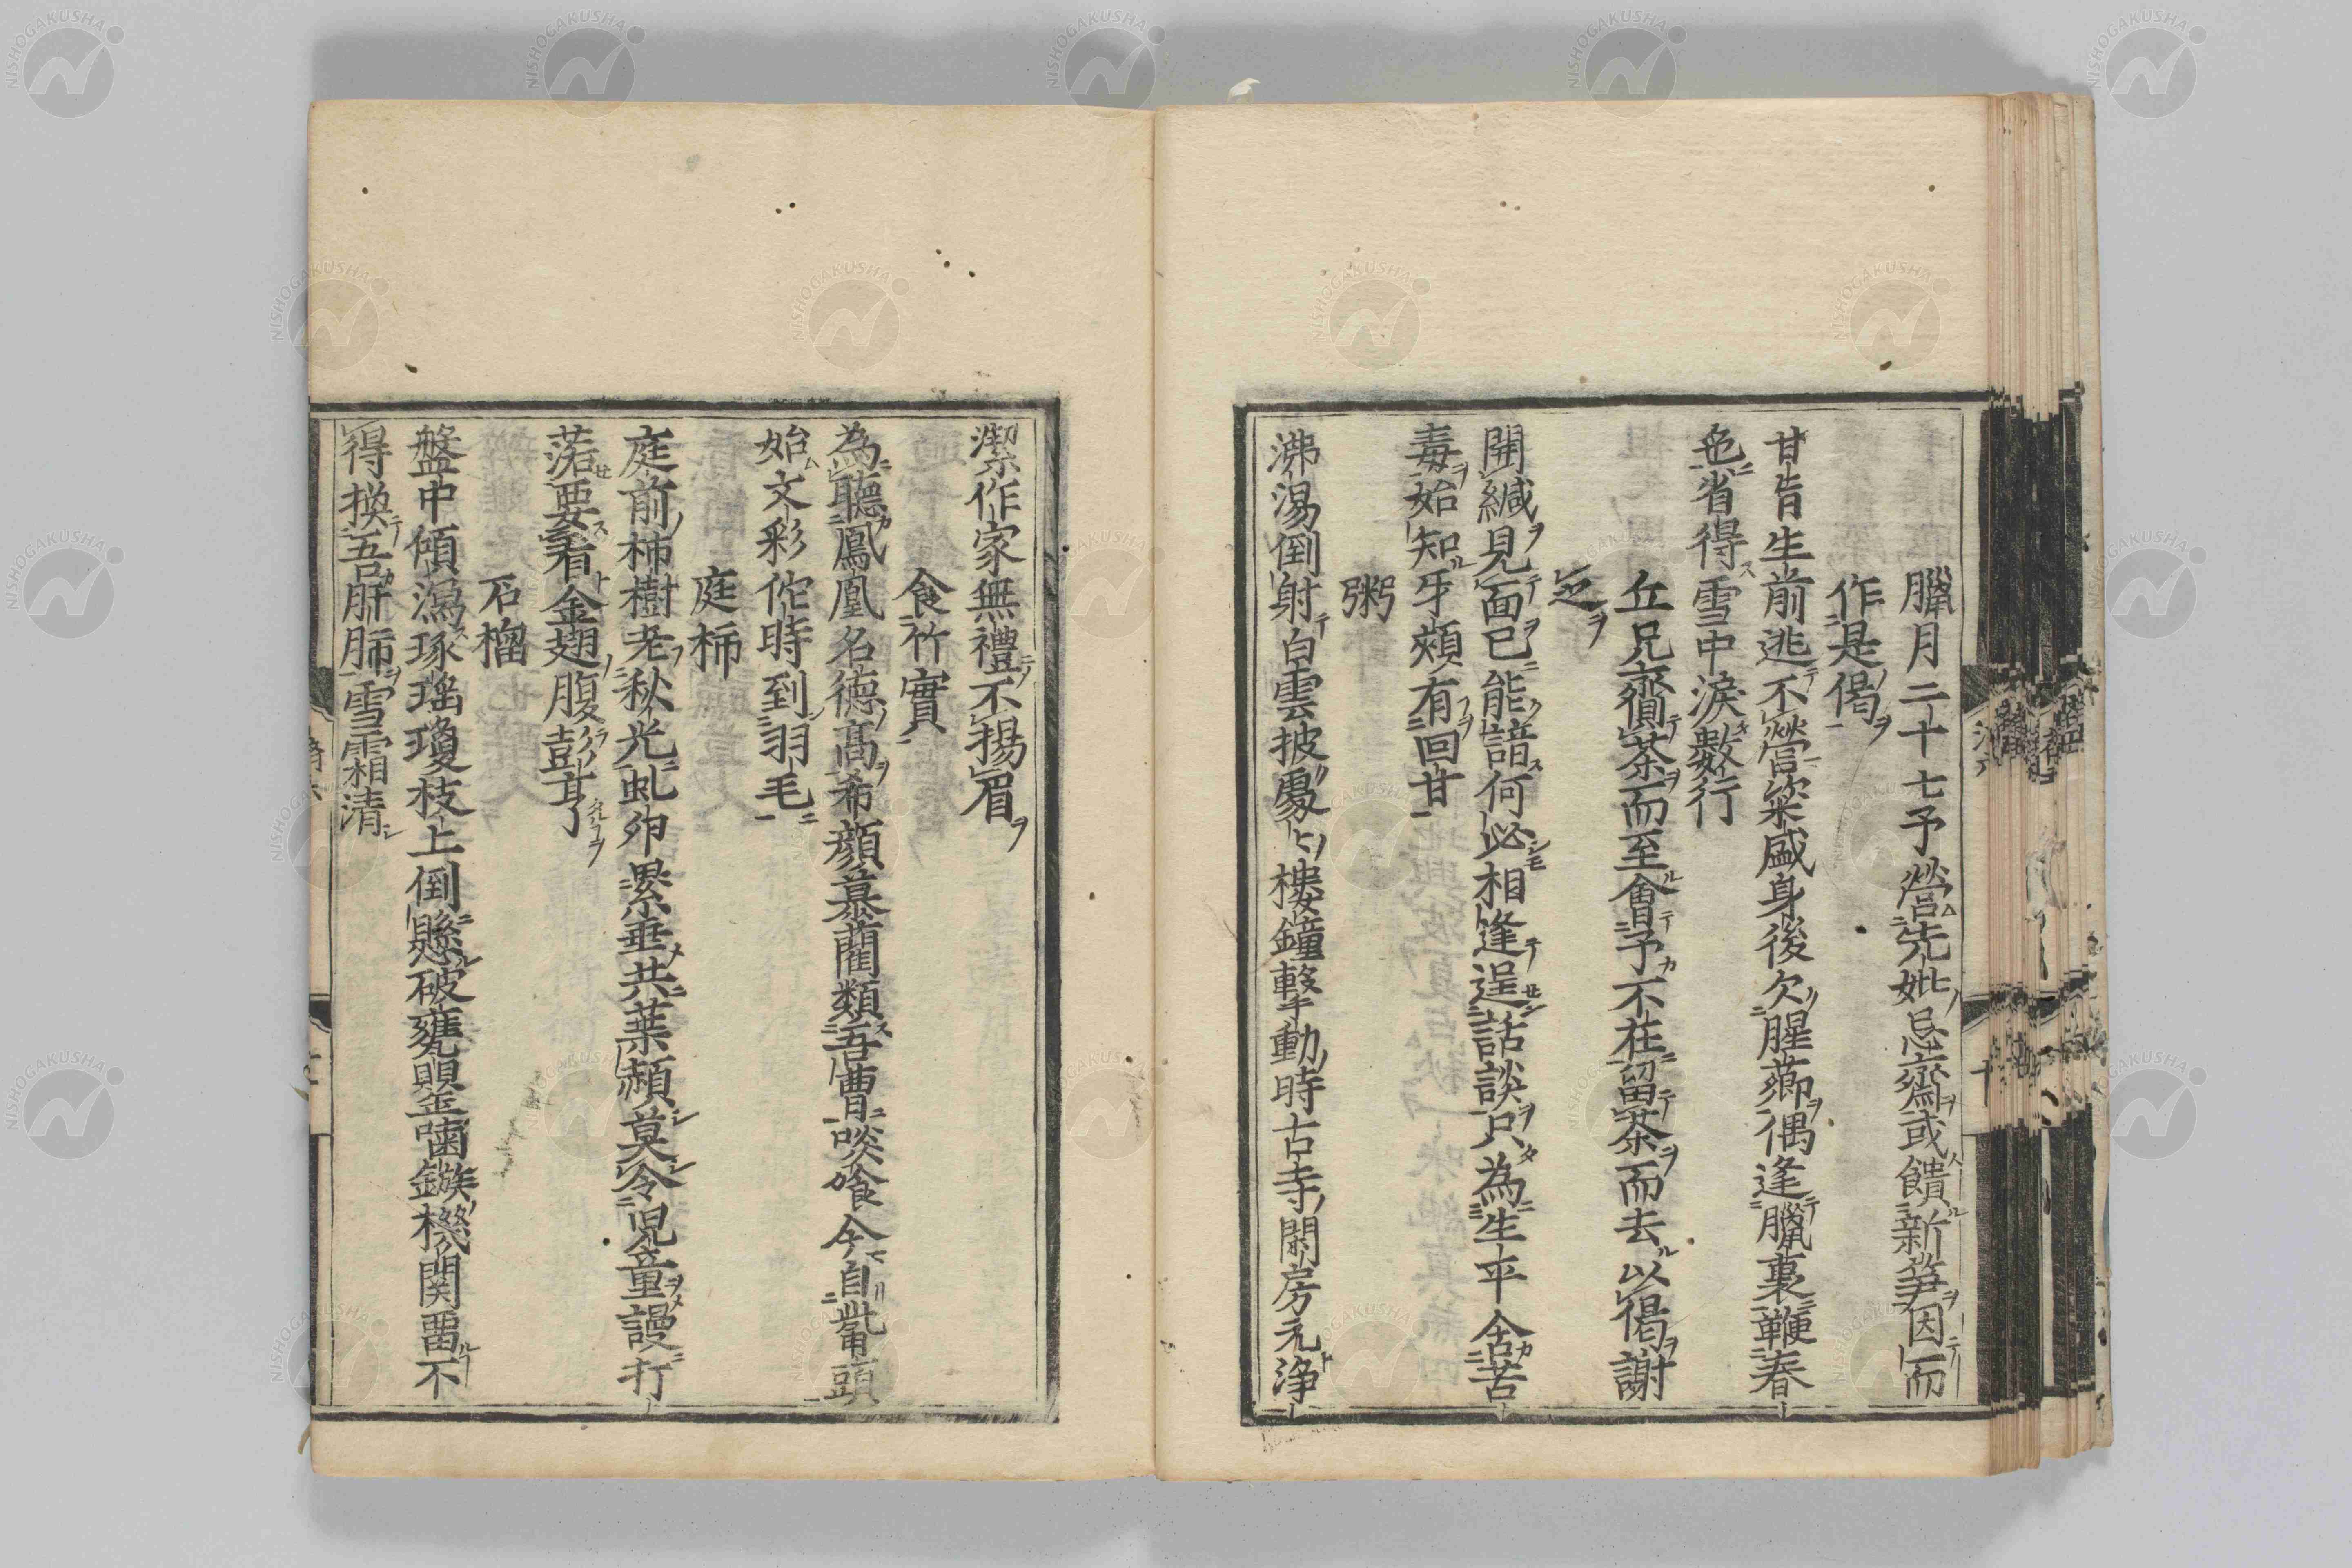 臘月二十七予營先妣忌齋或饋新笋因而
作是偈
甘旨生前逃不營粢盛身後欠腥薌偶逢臘裏鞭春
色省得雪中淚數行
丘兄齎茶而至會予不在留茶而去以偈謝
之
開緘見面已能諳何必相逢逞話談只為生平含苦
毒始知牙頰有回甘
粥
沸湯倒射白雲披曳上樓鐘擊動時古寺閑房元淨
潔作家無禮不揚眉
食竹實
為聽鳳凰名德高希顏慕藺類吾曹啖喰今自觜頭
始文彩佗時到羽毛
庭柿
庭前柿樹老秋光虬卵累垂共葉頳莫令児童謾打
落要看金翅腹彭亨
石榴
盤中傾瀉琢瑤瓊枝上倒懸破甕甖齒鏃機関畱不
得換吾肝肺雪霜清